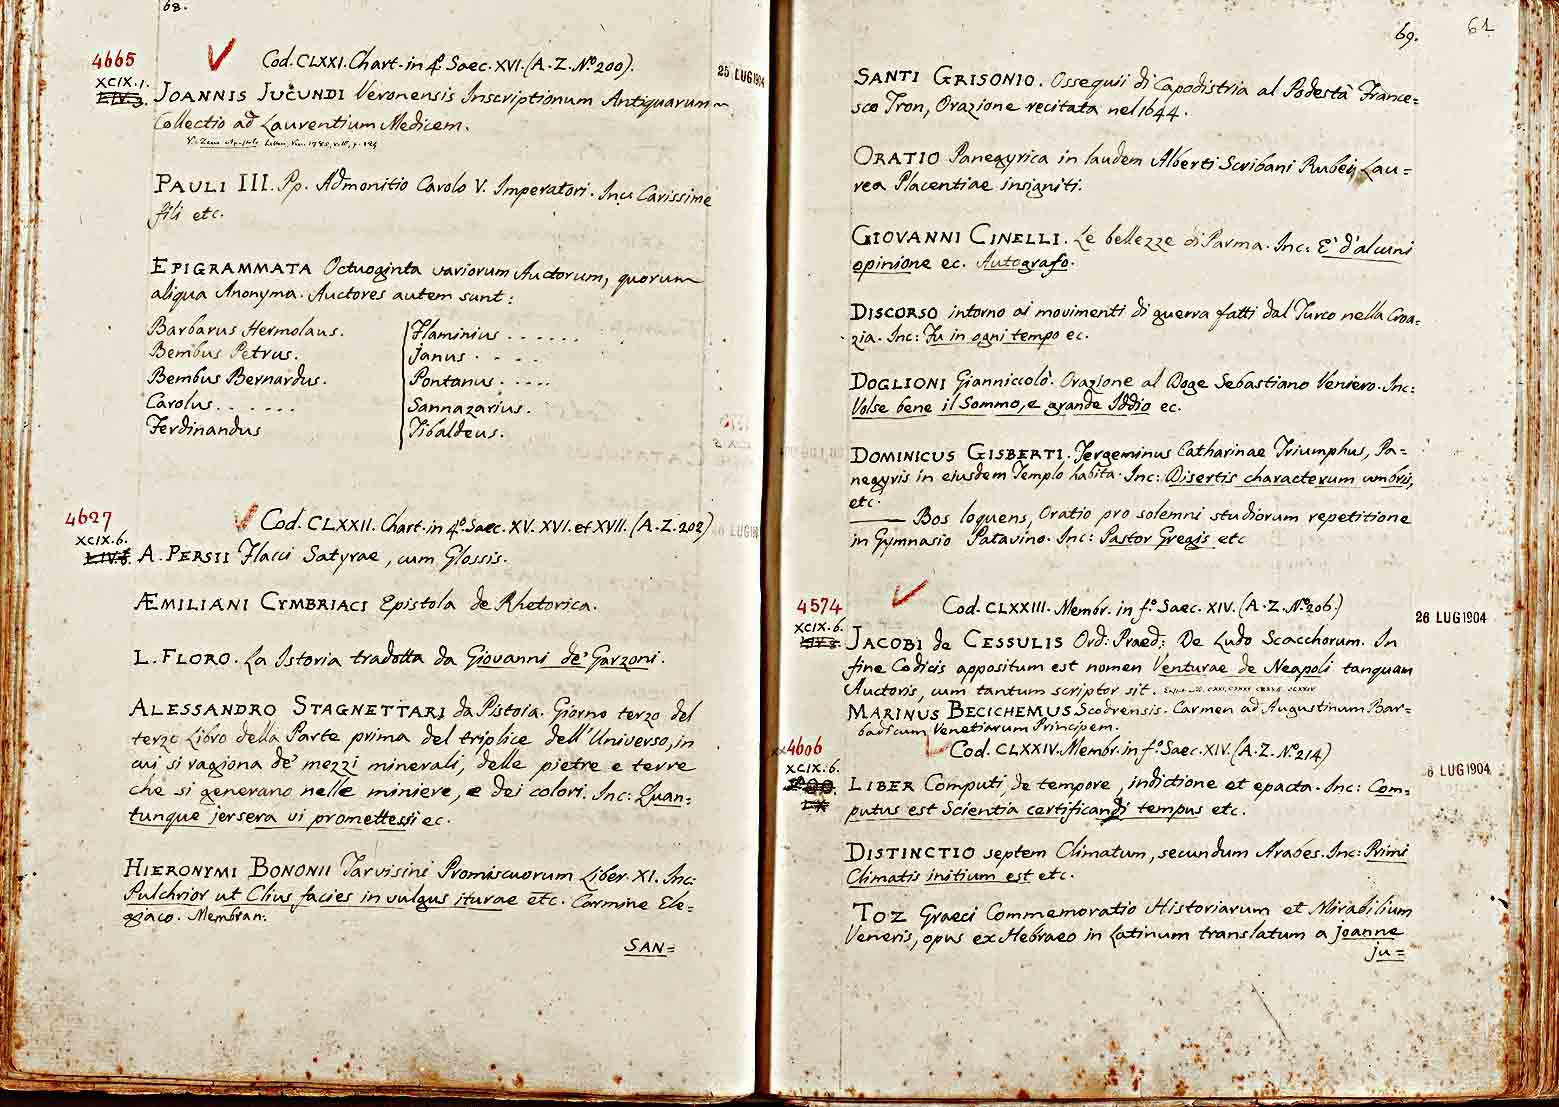 68.
4665
Cod. CLXXI. Chart. in 4º. Saec. XVI. (A. Z. Nº. 200).
25 LUG 1904
XCIX. 1.
JOANNIS JUCUNDI Veronensis Inscriptionum Antiquarum
Collectio ad Laurentium Medicem.
PAULI III. Pp. Admonitio Carolo V. Imperatori. Inc: Carissime
fili etc.
EPIGRAMMATA Octuoginta variorum Auctorum, quorum
aliqua Anonyma. Auctores autem sunt:
Barbarus Hermolaus.
Bembus Petrus.
Bembus Bernardus.
Carolus. . . . . . .
Ferdinandus
Flaminius . . . . . .
Janus . . . . .
Pontanus . . . . .
Sannazarius.
Tibaldeus.
4627
Cod. CLXXII. Chart. in 4º. Saec. XV. XVI. et XVII. (A. Z. 202)
26 LUG 19
XCIX. 6.
A. PERSII Flacci Satyrae, cum Glossis.
ÆMILIANI CYMBRIACI Epistola de Rhetorica.
L. FLORO. La Istoria tradotta da Giovanni de' Garzoni.
ALESSANDRO STAGNETTARI da Pistoia. Giorno terzo del
terzo Libro della Parte prima del triplice dell'Universo, in
cui si ragiona de' mezzi minerali, delle pietre e terre
che si generano nelle miniere, e dei colori. Inc: Quan=
tunque jersera vi promettessi ec.
HIERONYMI BONONII Tarvisini Promiscuorum Liber. XI. Inc:
Pulchrior ut Clius facies in vulgus iturae etc. Carmine Ele=
ggiaco. Membran.
SAN=
69.
61
SANTI GRISONIO. Ossequii di Capodistria al Podestà France=
sco Tron, Orazione recitata nel 1644.
ORATIO Panegyrica in laudem Alberti Scribani Rubei Lau=
rea Placentiae insigniti.
GIOVANNI CINELLI. Le bellezze di Parma. Inc: E' d'alcuni
opinione ec. Autografo.
DISCORSO intorno ai movimenti di guerra fatti dal Turco nella Croa=
zia. Inc: Fu in ogni tempo ec.
DOGLIONI Gianniccolò. Orazione al Doge Sebastiano Veniero. Inc:
Volse bene il Sommo, e grande Iddio ec.
DOMINICUS GISBERTI. Tergeminus Catharinae Triumphus, Pa=
negyris in ejusdem Templo habita. Inc: Disertis characterum umbris,
etc.
——— Bos loquens, Oratio pro solemni studiorum repetitione
in Gymnasio Patavino. Inc: Pastor Gregis etc
4574
Cod. CLXXIII. Membr. in fº. Saec. XIV. (A. Z. Nº. 206.)
26 LUG 1904
XCIX. 6.
JACOBI de CESSULIS Ord: Praed: De Ludo Scacchorum. In
fine Codicis appositum est nomen Venturae de Neapoli tanquam
Auctoris, cum tantum scriptor sit.
MARINUS BECICHEMUS Scodrensis. Carmen ad Augustinum Bar=
badicum Venetiarum Principem.
4606
Cod. CLXXIV. Membr. in fº. Saec. XIV. (A. Z. Nº. 214)
6 LUG 1904
XCIX. 6.
LIBER Computi, de tempore, indictione et epacta. Inc: Com=
putus est Scientia certificandi tempus etc.
DISTINCTIO septem Climatum, secundum Arabes. Inc: Primi
Climatis initium est etc.
TOZ Graeci Commemoratio Historiarum et Mirabilium
Veneris, opus ex Hebraeo in Latinum translatum a Joanne
Ju=